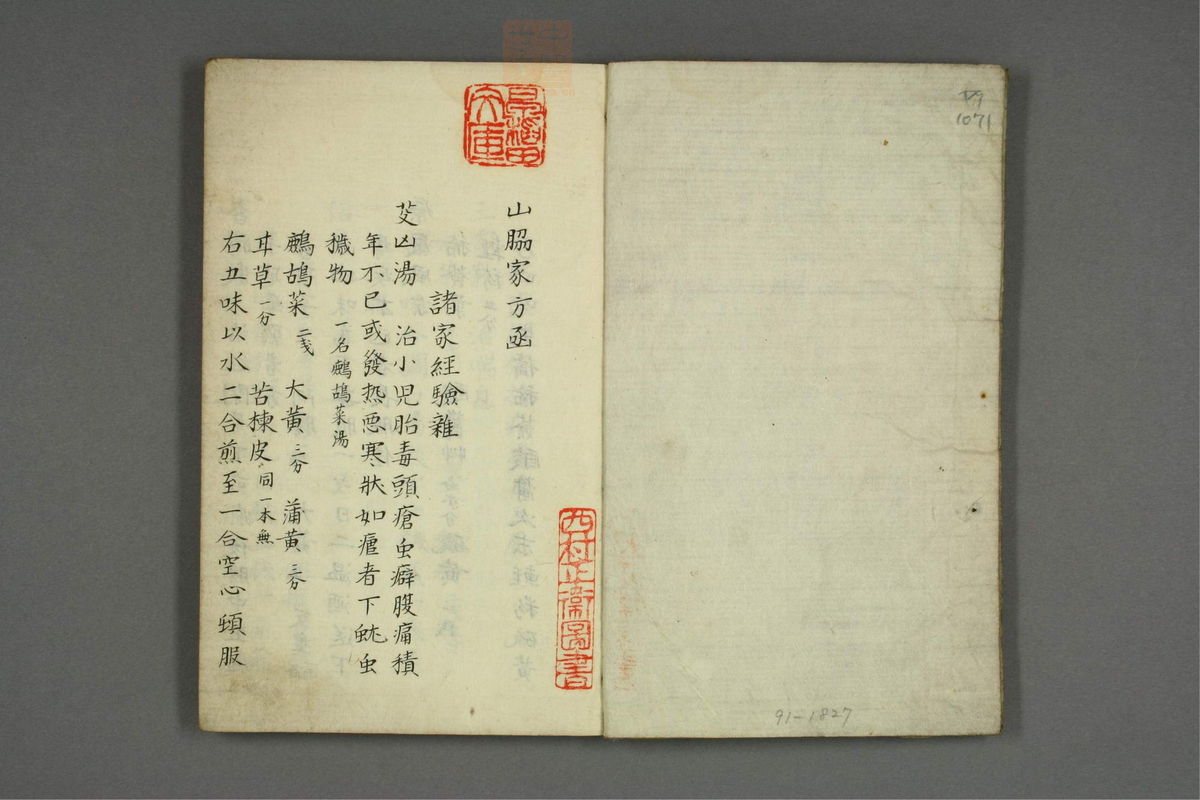 山脇家方函
諸家經驗雜
芟凶湯 治小児胎毒頭瘡虫癖腹痛積
年不已或發熱悪寒狀如瘧者下蚘虫
穢物 一名鷓鴣菜湯
鷓鴣菜 二戔 大黄 三分 蒲黄 三分
甘草 一分 苦楝皮 同一本無
右五味以水二合煎至一合空心頓服
西村正衛圖書
1071
91-1827